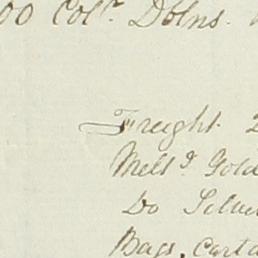 00 Col.r Dblns.
Freight
Melt.d Gold
Do Silver
Bags, Carta